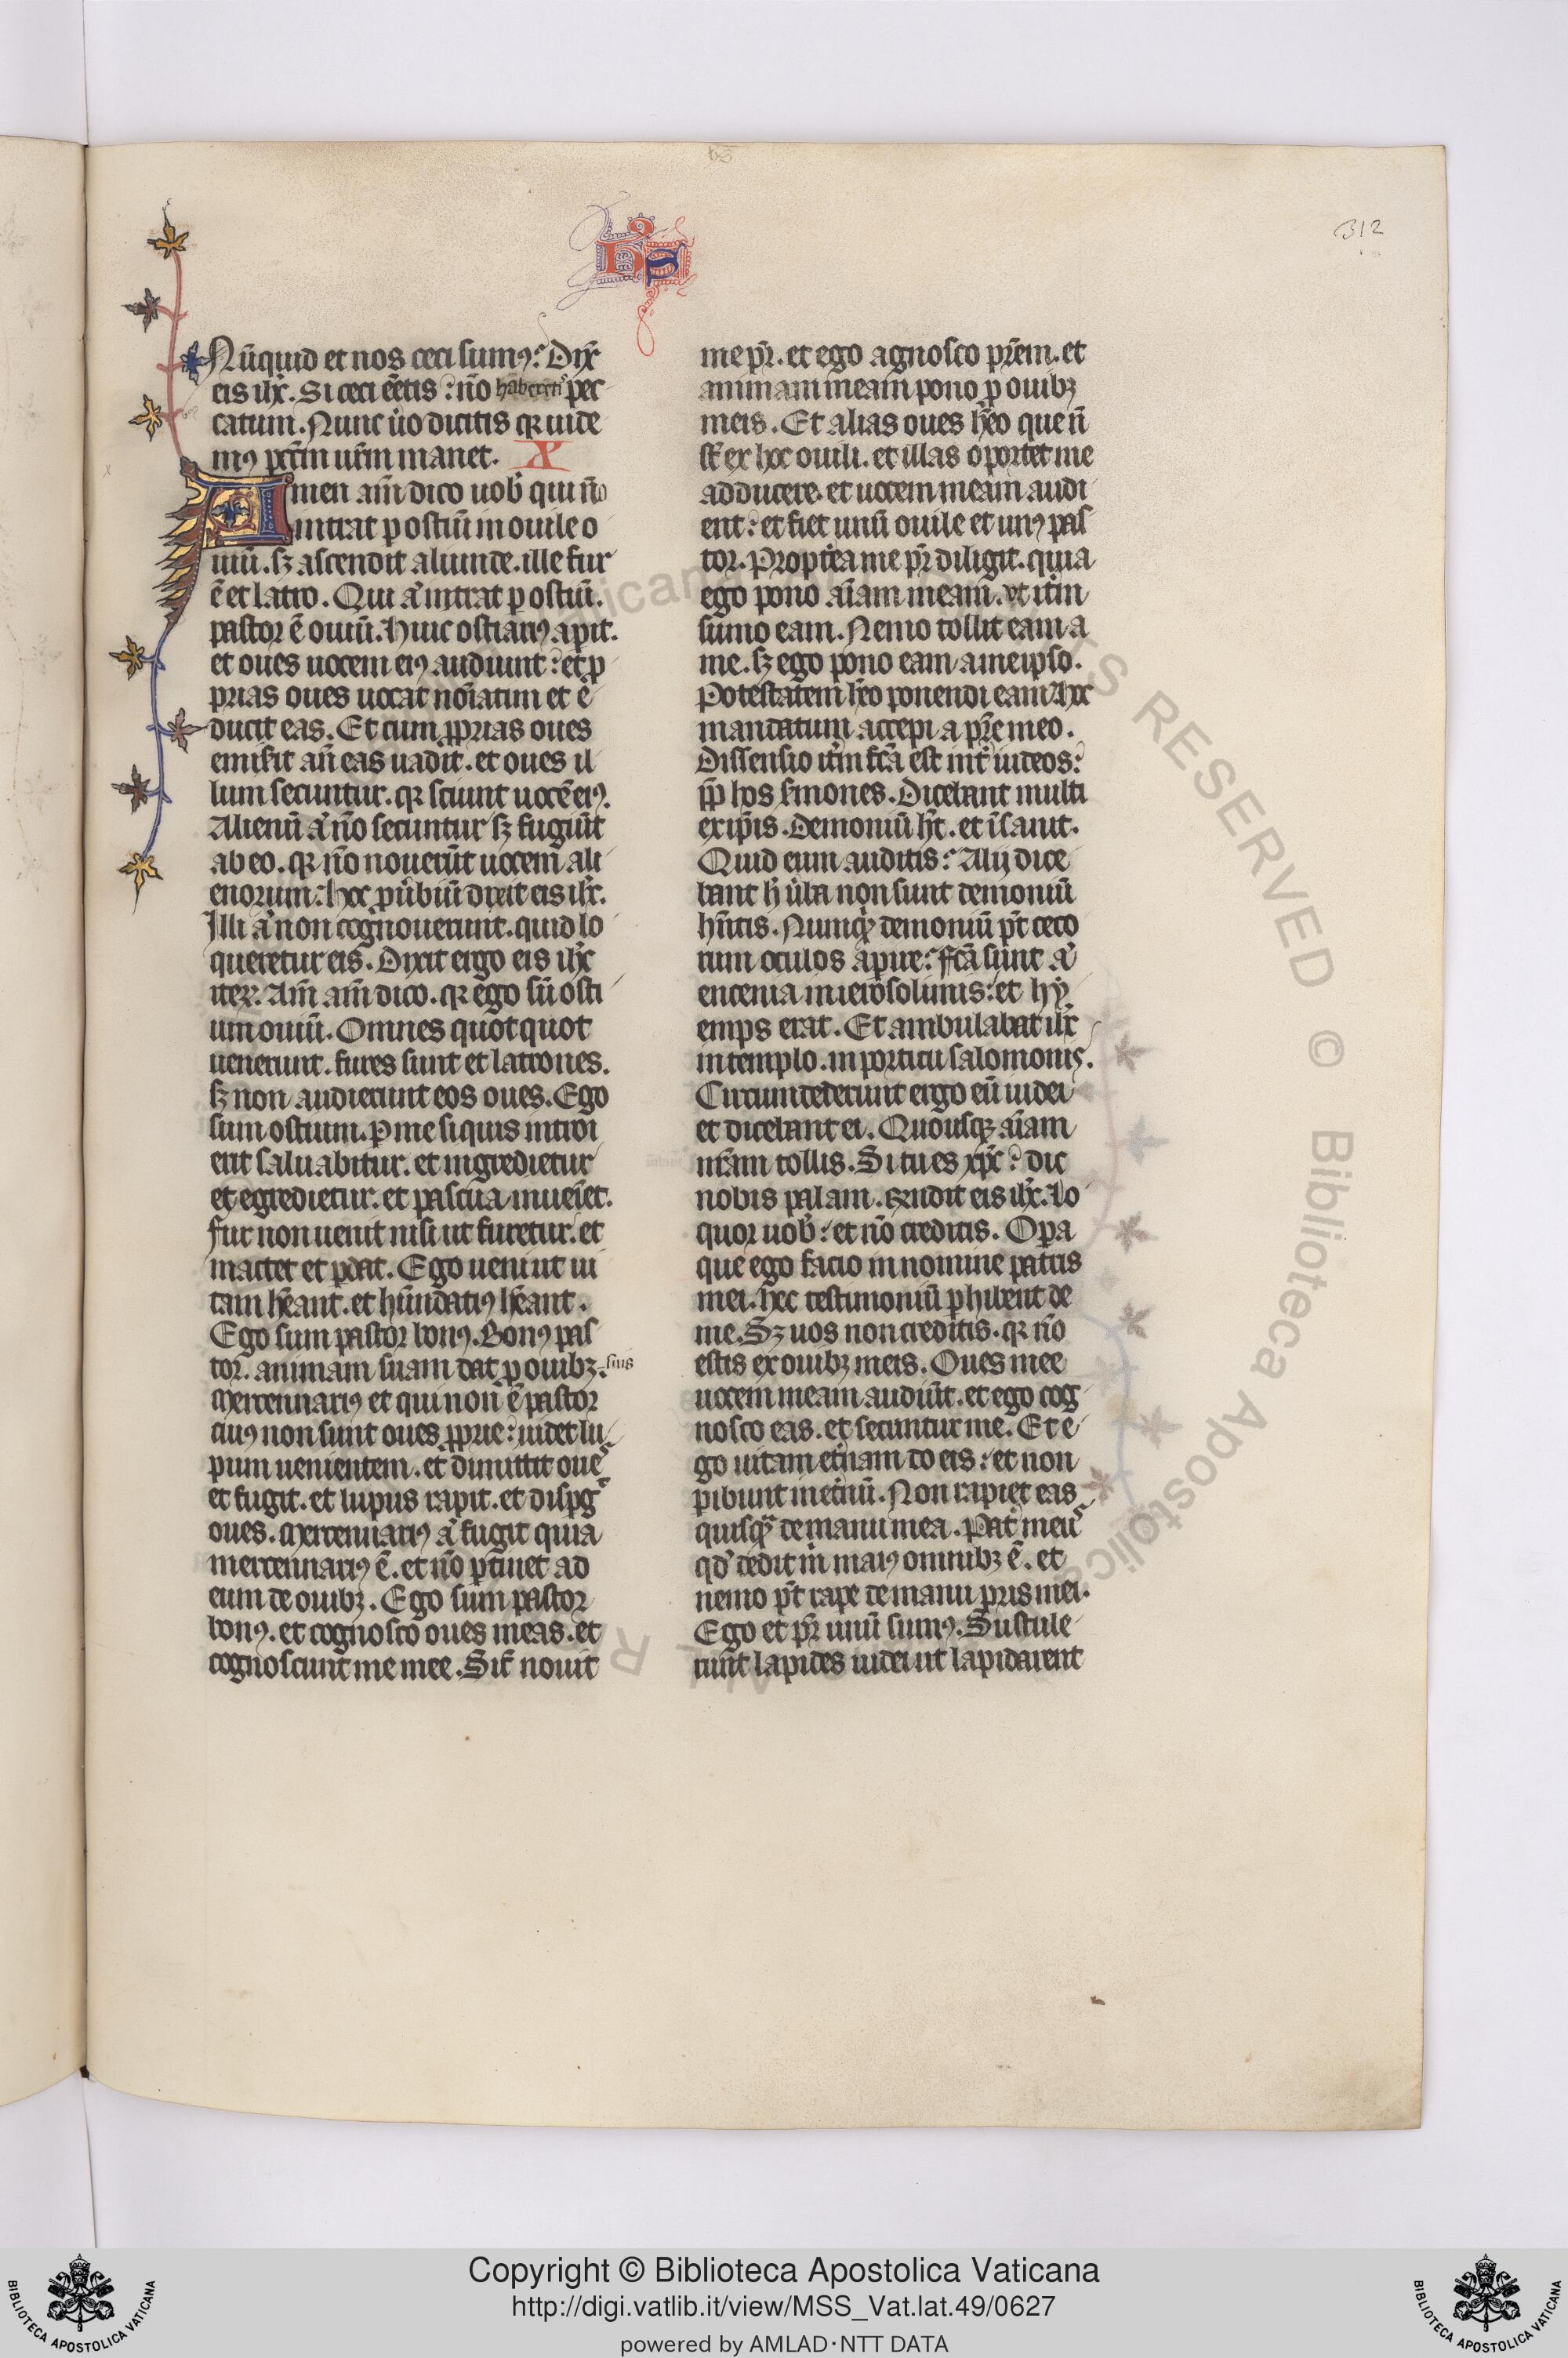 hs
312
NES
Nūquid et nos ceci sumꝰ? Dix̄
eis ih̄c. Si ceci eētis? nō haberetiˢ pec
catum. Nunc ůo dicitis qꝛ uide
mꝰ pctm̄ urm̄ manet. X
Amen am̄ dico uob̓ qui nō
intrat ꝑ ostiū in ouile o
uiū. sꝫ ascendit aliunde. ille fur
ē et latro. Qui aͧ intrat ꝑ ostiū.
pastor ē ouiū. Huic ostiariꝰ apit.
et oues uocem eiꝰ audiunt? et ꝓ
prias oues uocat noīatim et e
ducit eas. Et cum ꝓprias oues
emiserit an̄ eas uadit. et oues il
lum secuntur. qꝛ sciunt uocē eiꝰ.
Alienū aͧ nō secuntur sꝫ fugiūt
ab eo. qꝛ nō nouerūt uocem ali
enorum. Hoc ꝓuˀbiū dixit eis ih̄c.
Illi aͧ non cognouerunt. quid lo
queretur eis. Dixit ergo eis ih̄c
iteꝝ. Am̄ am̄ dico. qꝛ ego sū osti
um ouiū. Omnes quotquot
uenerunt. fures sunt et latrones.
sꝫ non audierunt eos oues. Ego
sum ostium. ꝑ me si quis introi
erit saluabitur. et ingredietur
et egredietur. et pascua inueīet.
Fur non uenit nisi ut furetur. et
mactet et ꝑdat. Ego ueni ut ui
tam hēant. et hūndatiꝰ hēant.
Ego sum pastor bonꝰ. Bonꝰ pas
tor. animam suam dat ꝓ ouibꝫ. suis
Mercennariꝰ et qui non ē pastor
cuiꝰ non sunt oues ꝓprie? uidet lu
pum uenientem. et dimittit oues
et fugit. et lupus rapit. et dispgˀ
oues. Mercennariꝰ aͧ fugit quia
mercennariꝰ ē. et nō ꝑtinet ad
eum de ouibꝫ. Ego sum pastor
bonꝰ. et cognosco oues meas. et
cognoscunt me mee. Sic̄ nouit
me pr̄. et ego agnosco prēm. et
animam meam pono ꝓ ouibꝫ
meis. Et alias oues hēo que n̄
st̄ ex hoc ouili. et illas oportet me
adducere. et uocem meam audi
ent? et fiet unū ouile et unꝰ pas
tor. Proptˀea me pr̄ diligit. quia
ego pono aīam meam. ut itˀm
sumo eam. Nemo tollit eam a
me. sꝫ ego pono eam a me ipso.
Potestatem hēo ponendi eam. Hoc
mandatum accepi a prē meo.
Dissensio itˀm fcā est intˀ iudeos?
ꝓp̄ hos sˀmones. Dicebant multi
ex ip̄is. Demoniū h̄t. et īsanit.
Quid eum auditis? Alij dice
bant h̄ uˀba non sunt demoniū
hn̄tis. Numqͥd demoniū pt̄ ceco
rum oculos apire? Fcā sunt aͧ
encenia in ierosolimis? et hy
emps erat. Et ambulabat ih̄c
in templo. in porticu salomonis.
Circumdederunt ergo eū iudei
et dicebant ei. Quousqꝫ aīam
nrām tollis. Si tu es xp̄c? dic
nobis palam. Rn̄dit eis ih̄c. Lo
quor uob̓? et nō creditis. Opa
que ego facio in nomine patris
mei. hec testimoniū ꝑhibent de
me. Sꝫ uos non creditis. qꝛ nō
estis ex ouibꝫ meis. Oues mee
uocem meam audiūt. et ego cog
nosco eas. et secuntur me. Et e
go uitam etˀnam do eis? et non
ꝑibunt in etˀnū. Non rapiet eas
quisqͣ de manu mea. Patˀ meus
qd̓ dedit m̄ maiꝰ omnibꝫ ē. et
nemo pt̄ rape de manu pr̄is mei.
Ego et pr̄ unū sumꝰ. Sustule
runt lapides iudei ut lapidarent
Copyright © Biblioteca Apostolica Vaticana
http://digi.vatlib.it/view/MSS_Vat.lat.49/0627
powered by AMLAD·NTT DATA
BIBLIOTECA APOSTOLICA VATICANA
BIBLIOTECA APOSTOLICA VATICANA